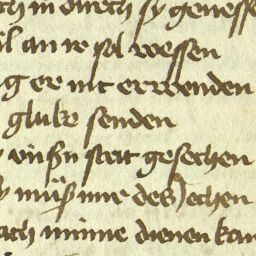 ich in durch sy genesse
il an ir sol wessen
g er nit erwenden
gluke senden
vinsn stat geschehen
müss mir des iechen
ach minne dienen kan